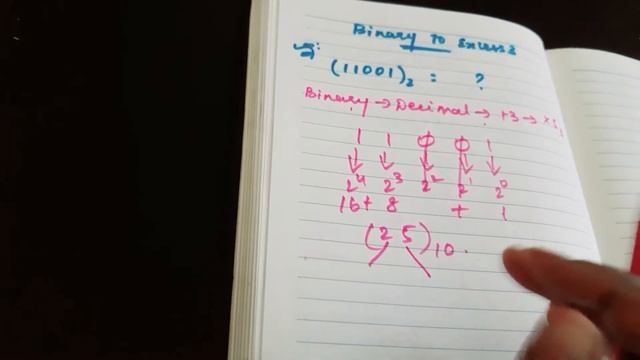 Binary to Excess 3
(11001)₂ = ?
Binary → Decimal → +3 →
1 1 0 0 1
2⁴ 2³ 2² 2¹ 2⁰
16 + 8 + 1
(25)₁₀.